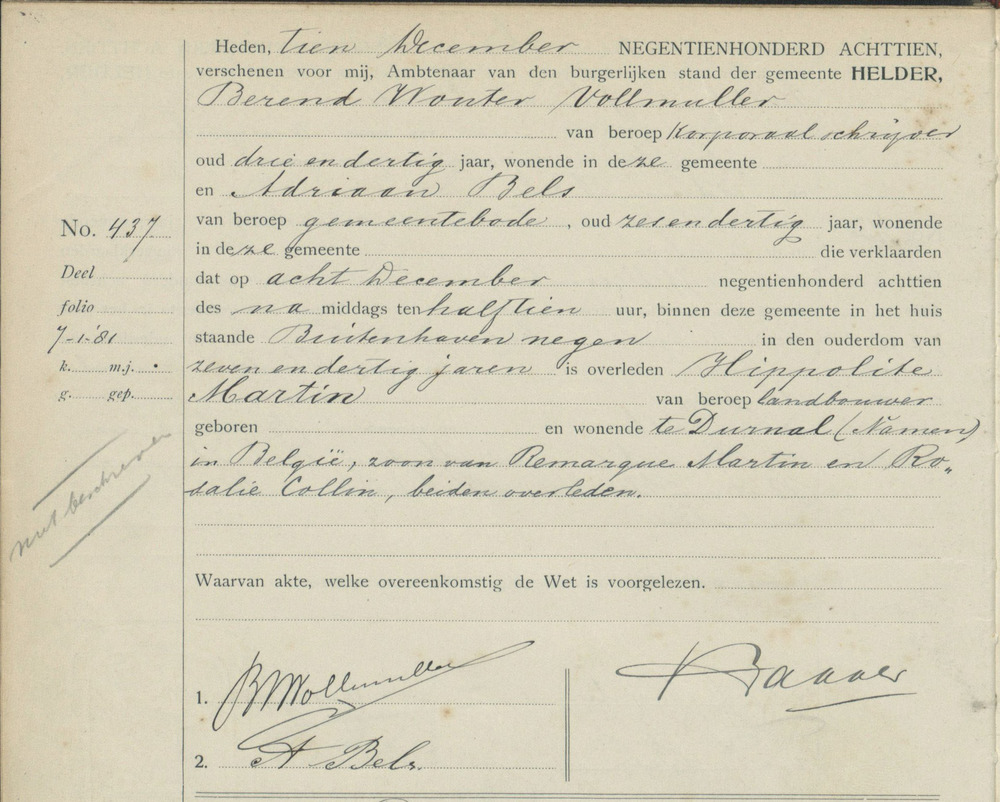 Heden, tien December NEGENTIENHONDERD ACHTTIEN,
verschenen voor mij, Ambtenaar van den burgerlijken stand der gemeente HELDER,
Berend Wouter Vollmuller
van beroep Korporaal schrijver
oud drie en dertig jaar, wonende in deze gemeente
en Adriaan Bels
van beroep gemeentebode, oud zes en dertig jaar, wonende
in deze gemeente die verklaarden
dat op acht December negentienhonderd achttien
des na middags ten half tien uur, binnen deze gemeente in het huis
staande Buitenhaven negen in den ouderdom van
zeven en dertig jaren is overleden Hippolite
Martin van beroep landbouwer
geboren en wonende te Durnal (Namen)
in België, zoon van Remarque Martin en Ro„
salie Collin, beiden overleden.
Waarvan akte, welke overeenkomstig de Wet is voorgelezen.
1. BWVollmuller
2. A Bels.
No. 437
Deel
folio
7-1-'81
k. m.j.
g. gep.
niet beschreven